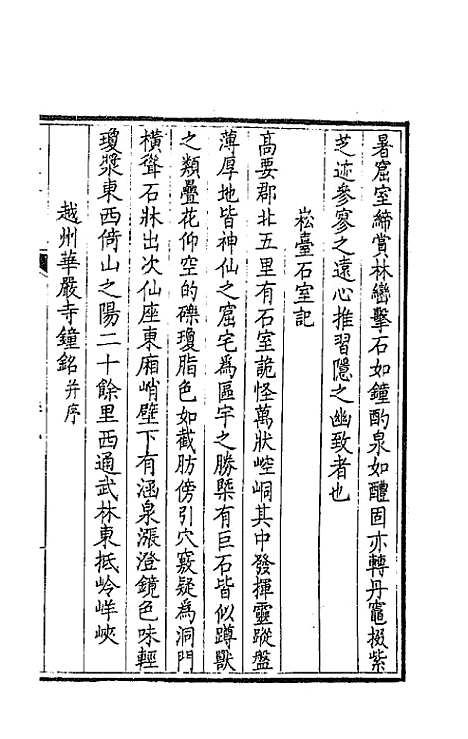 暑窟室締賞林巒擊石如鐘酌泉如醴固亦轉丹竈掇紫
芝迹參寥之遠心推習隱之幽致者也
崧臺石室記
高要郡北五里有石室詭怪萬狀崆峒其中發揮靈蹤盤
薄厚地皆神仙之窟宅為區宇之勝槩有巨石皆似蹲獸
之類疊花仰空的礫瓊脂色如截肪傍引穴竅疑為洞門
橫聳石牀出次仙座東廂峭壁下有涵泉漲澄鏡色味輕
瓊漿東西倚山之陽二十餘里西通武林東抵岭峽
越州華嚴寺鐘銘并序